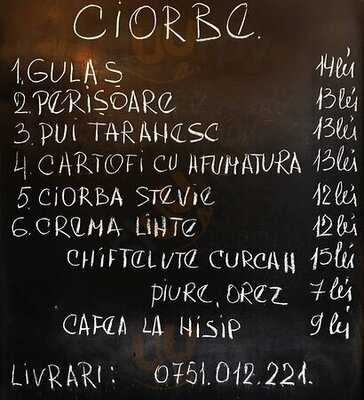 CIORBE.
1. GULAȘ 14 lei
2. PERIȘOARE 13 lei
3. PUI TARANESC 13 lei
4. CARTOFI CU AFUMATURA 13 lei
5. CIORBA STEVIE 12 lei
6. CREMA LINTE 12 lei
CHIFTELUTE CURCAN 15 lei
PIURE, OREZ 7 lei
CAFEA LA NISIP 9 lei
LIVRARI: 0751.012.221.